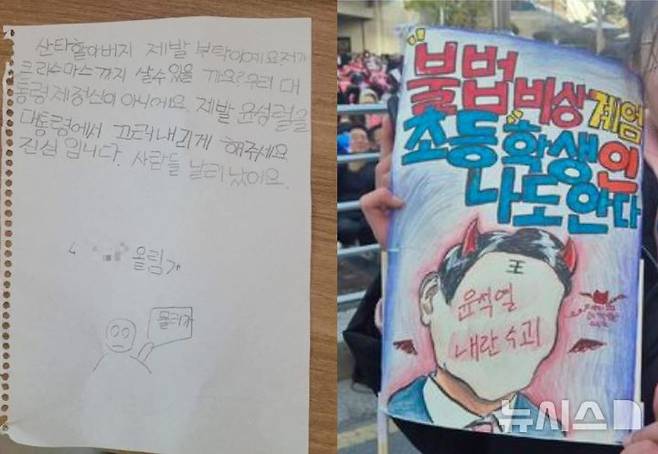 산타할아버지 제발 부탁이예요저가
클리스마스까지 살수있을 까요?우리 대
통령제정신이 아니에요 제발 윤성렬을
대통령에서 끄러내리게 해주세요
진심 입니다. 사람들 날리 났어요.
올림
물러가
"불법"비상계엄
초등학생인
나도 안다
王
윤석열
내란 수괴
뉴시스